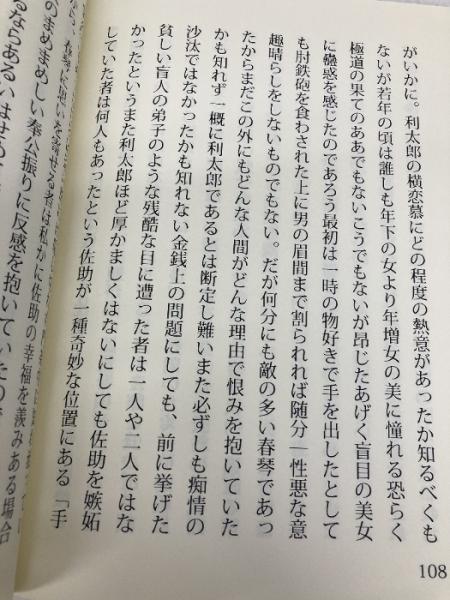 がいかに。利太郎の横恋慕にどの程度の熱意があったか知るべくも
ないが若年の頃は誰しも年下の女より年増女の美に憧れる恐らく
極道の果てのああでもないこうでもないが昂じたあげく盲目の美女
に蠱惑を感じたのであろう最初は一時の物好きで手を出したとして
も肘鉄砲を食わされた上に男の眉間まで割られれば随分性悪な意
趣晴らしをしないものでもない。だが何分にも敵の多い春琴であっ
たからまだこの外にもどんな人間がどんな理由で恨みを抱いていた
かも知れず一概に利太郎であるとは断定し難いまた必ずしも痴情の
沙汰ではなかったかも知れない金銭上の問題にしても、前に挙げた
貧しい盲人の弟子のような残酷な目に遭った者は一人や二人ではな
かったというまた利太郎ほど厚かましくはないにしても佐助を嫉妬
していた者は何人もあったという佐助が一種奇妙な位置にある「手
せる者は私かに佐助の幸福を羨みある場合
のまめまめしい奉公振りに反感を抱いていたので
るならあるいは
108